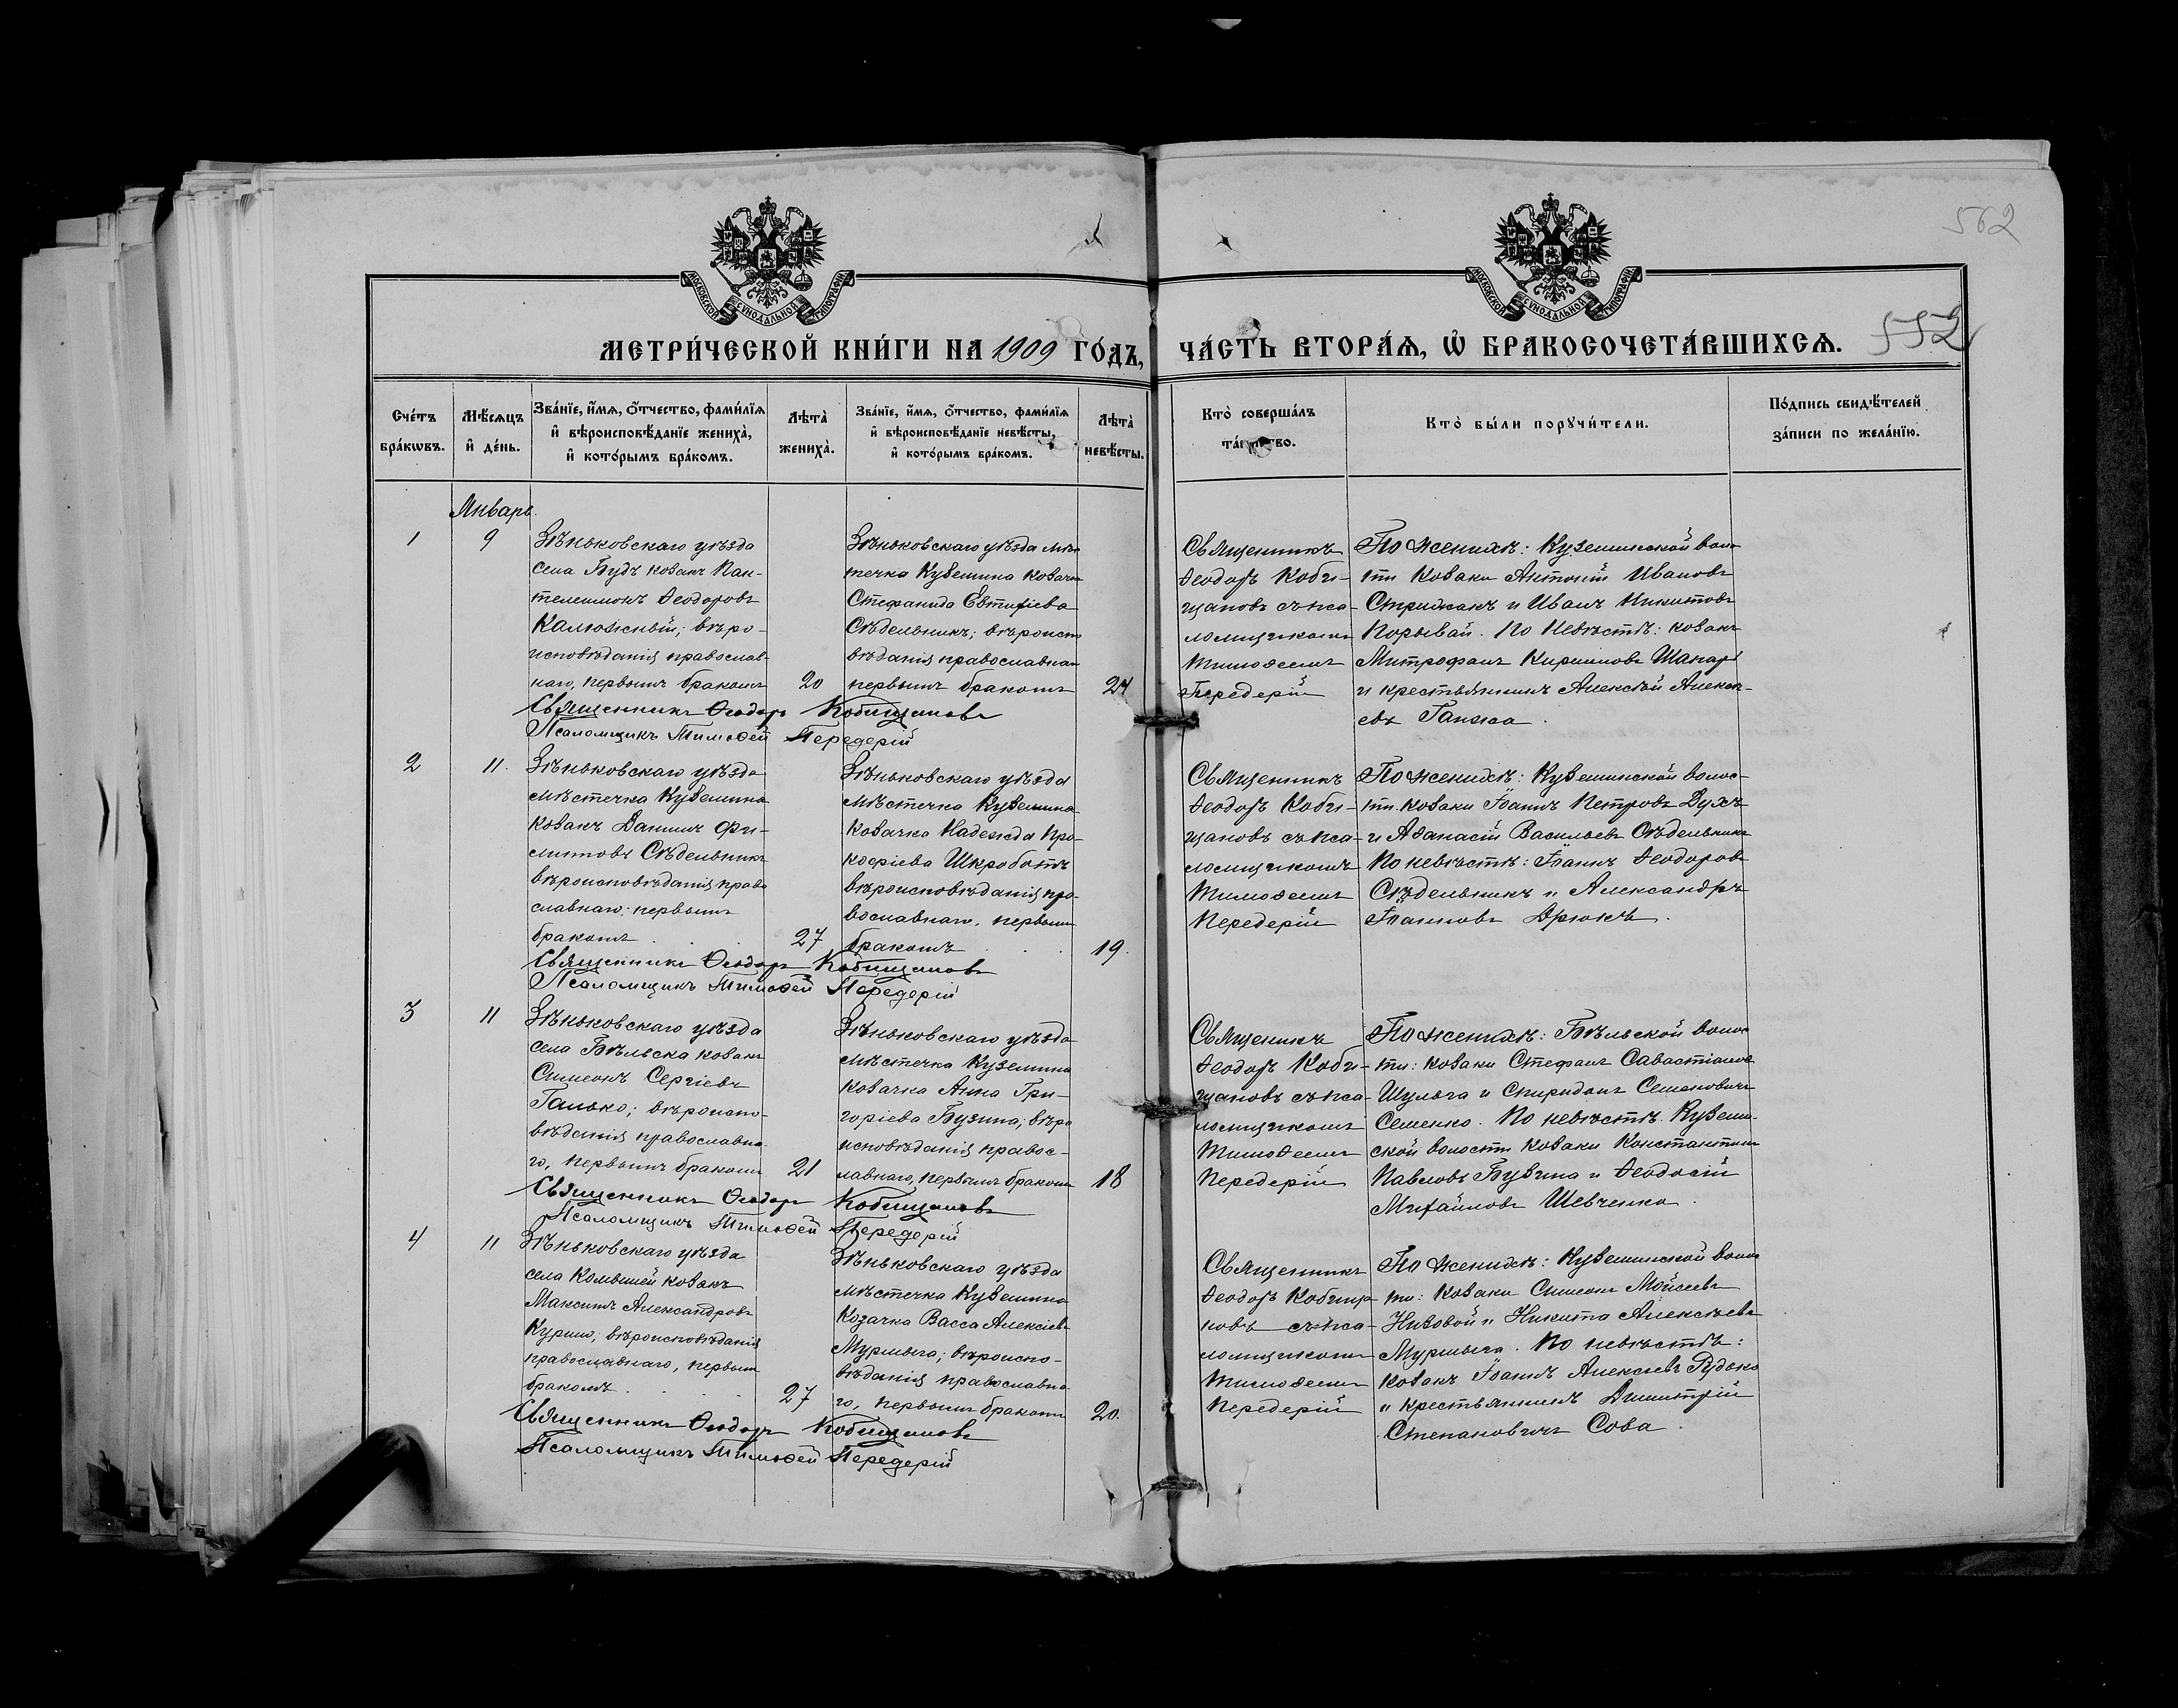 562
МОСКОВСКОЙ СѴНОДАЛЬНОЙ ТИПОГРАФІИ
МОСКОВСКОЙ СѴНОДАЛЬНОЙ ТИПОГРАФІИ
МЕТРИ́ЧЕСКОЙ КНИ́ГИ НА 1909 ГО́ДЪ, ЧА́СТЬ ВТОРА́Ѧ, Ѡ҆ БРАКОСОЧЕТА́ВШИХСѦ. 552
Сче́тъ бра́кѡвъ.
Мѣ́сѧцъ и҆ де́нь.
Зва́нїе, и҆́мѧ, ѻ҆́тчество, фами́лїѧ
и҆ вѣроисповѣ́данїе женихà,
и҆ кото́рымъ бра́комъ.
Лѣ́та женихà.
Зва́нїе, и҆́мѧ, ѻ҆́тчество, фами́лїѧ
и҆ вѣроисповѣ́данїе невѣ́сты,
и҆ кото́рымъ бра́комъ.
Лѣ́та невѣ́сты.
Кто̀ соверша́лъ
та́инство.
Кто̀ бы́ли порꙋчи́тели.
По́дпись свидѣ́телей
за́писи по жела́нїю.
Январь
1
9
Зѣньковскаго уѣзда
села Будъ козакъ Пан-
телеимонъ Ѳеодоровъ
Калюжный; вѣро-
исповѣданія православ-
наго, первымъ бракомъ
20
Зѣньковскаго уѣзда мѣс
течка Куземина козачка
Стефанида Евтихіева
Сѣдельникъ; вѣроиспо
вѣданія православнаго
первымъ бракомъ
24
Священникъ
Ѳеодоръ Коби-
щановъ съ пса-
ломщикомъ
Тимоѳеемъ
Передерій
По женихѣ: Куземинской воло
сти козаки Антоній Ивановъ
Стрижакъ и Иванъ Никитовъ
Порывай. По невѣстѣ: козакъ
Митрофанъ Кирилловъ Шапарь
и крестьянинъ Алексѣй Алексѣ-
евъ Ганжа.
Священникъ Ѳеодоръ Кобищановъ
Псаломщикъ Тимоѳей Передерій
2
11.
Зѣньковскаго уѣзда
мѣстечка Куземина
козакъ Даніилъ Фи-
липповъ Сѣдельникъ
вѣроисповѣданія право
славнаго: первымъ
бракомъ
27
Зѣньковскаго уѣзда
мѣстечка Куземина
козачка Надежда Про-
кофіева Шкроботъ
вѣроисповѣданія пра-
вославнаго, первымъ
бракомъ
19.
Священникъ
Ѳеодоръ Коби-
щановъ съ пса-
ломщикомъ
Тимоѳеемъ
Передерій
По женихѣ: Куземинской волос-
ти козаки Іоаннъ Петровъ Духъ
и Аѳанасій Васильевъ Сѣдельникъ
По невѣстѣ: Іоаннъ Ѳеодоровъ
Сѣдельникъ и Александръ
Іоанновъ Дрюкъ.
Священникъ Ѳеодоръ Кобищановъ
Псаломщикъ Тимоѳей Передерій
3
11
Зѣньковскаго уѣзда
села Бѣльска козакъ
Симеонъ Сергіевъ
Галько; вѣроиспо-
вѣданія православна-
го, первымъ бракомъ
21
Зѣньковскаго уѣзда
мѣстечка Куземина
козачка Анна Гри-
горіева Бузина; вѣро
исповѣданія правос-
лавнаго, первымъ бракомъ
18
Священникъ
Ѳеодоръ Коби-
щановъ съ пса-
ломщикомъ
Тимоѳеемъ
Передерій
По женихѣ: Бѣльской волос
ти: козаки Стефанъ Савастіановъ
Шульга и Спиридонъ Семеновичъ
Семенко. По невѣстѣ. Куземин-
ской волости козаки Константинъ
Павловъ Бузина и Ѳеодосій
Михайловъ Шевченко.
Священникъ Ѳеодоръ Кобищановъ
Псаломщикъ Тимоѳей Передерій
4
11
Зѣньковскаго уѣзда
села козакъ
Максимъ Александровъ
Курило; вѣроисповѣданія
православнаго, первымъ
бракомъ
27
Зѣньковскаго уѣзда
мѣстечка Куземина
Козачка Васса Алексіева
Мурмыга; вѣроиспо-
вѣданія православна
го, первымъ бракомъ
20.
Священникъ
Ѳеодоръ Кобища
новъ съ пса-
ломщикомъ
Тимоѳеемъ
Передерій
По женихѣ: Куземинской волос
ти: козаки Симеонъ Мойсеевъ
Низовой и Никита Алексѣевъ
Мурмыга. По невѣстѣ:
козакъ Іоаннъ Алексіевъ Рудько
и крестьянинъ Димитрій
Степановичъ Сова.
Священникъ Ѳеодоръ Кобищановъ
Псаломщикъ Тимоѳей Передерій